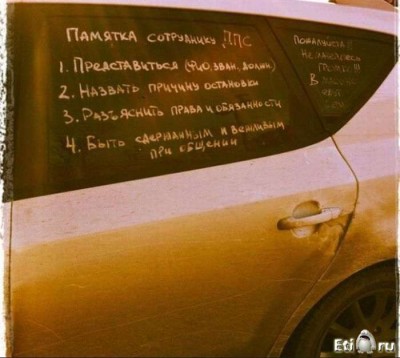 Памятка сотруднику ДПС
1. Представиться (Фио, зван. должн.)
2. Назвать причину остановки
3. Разъяснить права и обязанности
4. Быть сдержанным и вежливым
при общении
Пожалуйста!!
Не
!!!
В
Eti ru